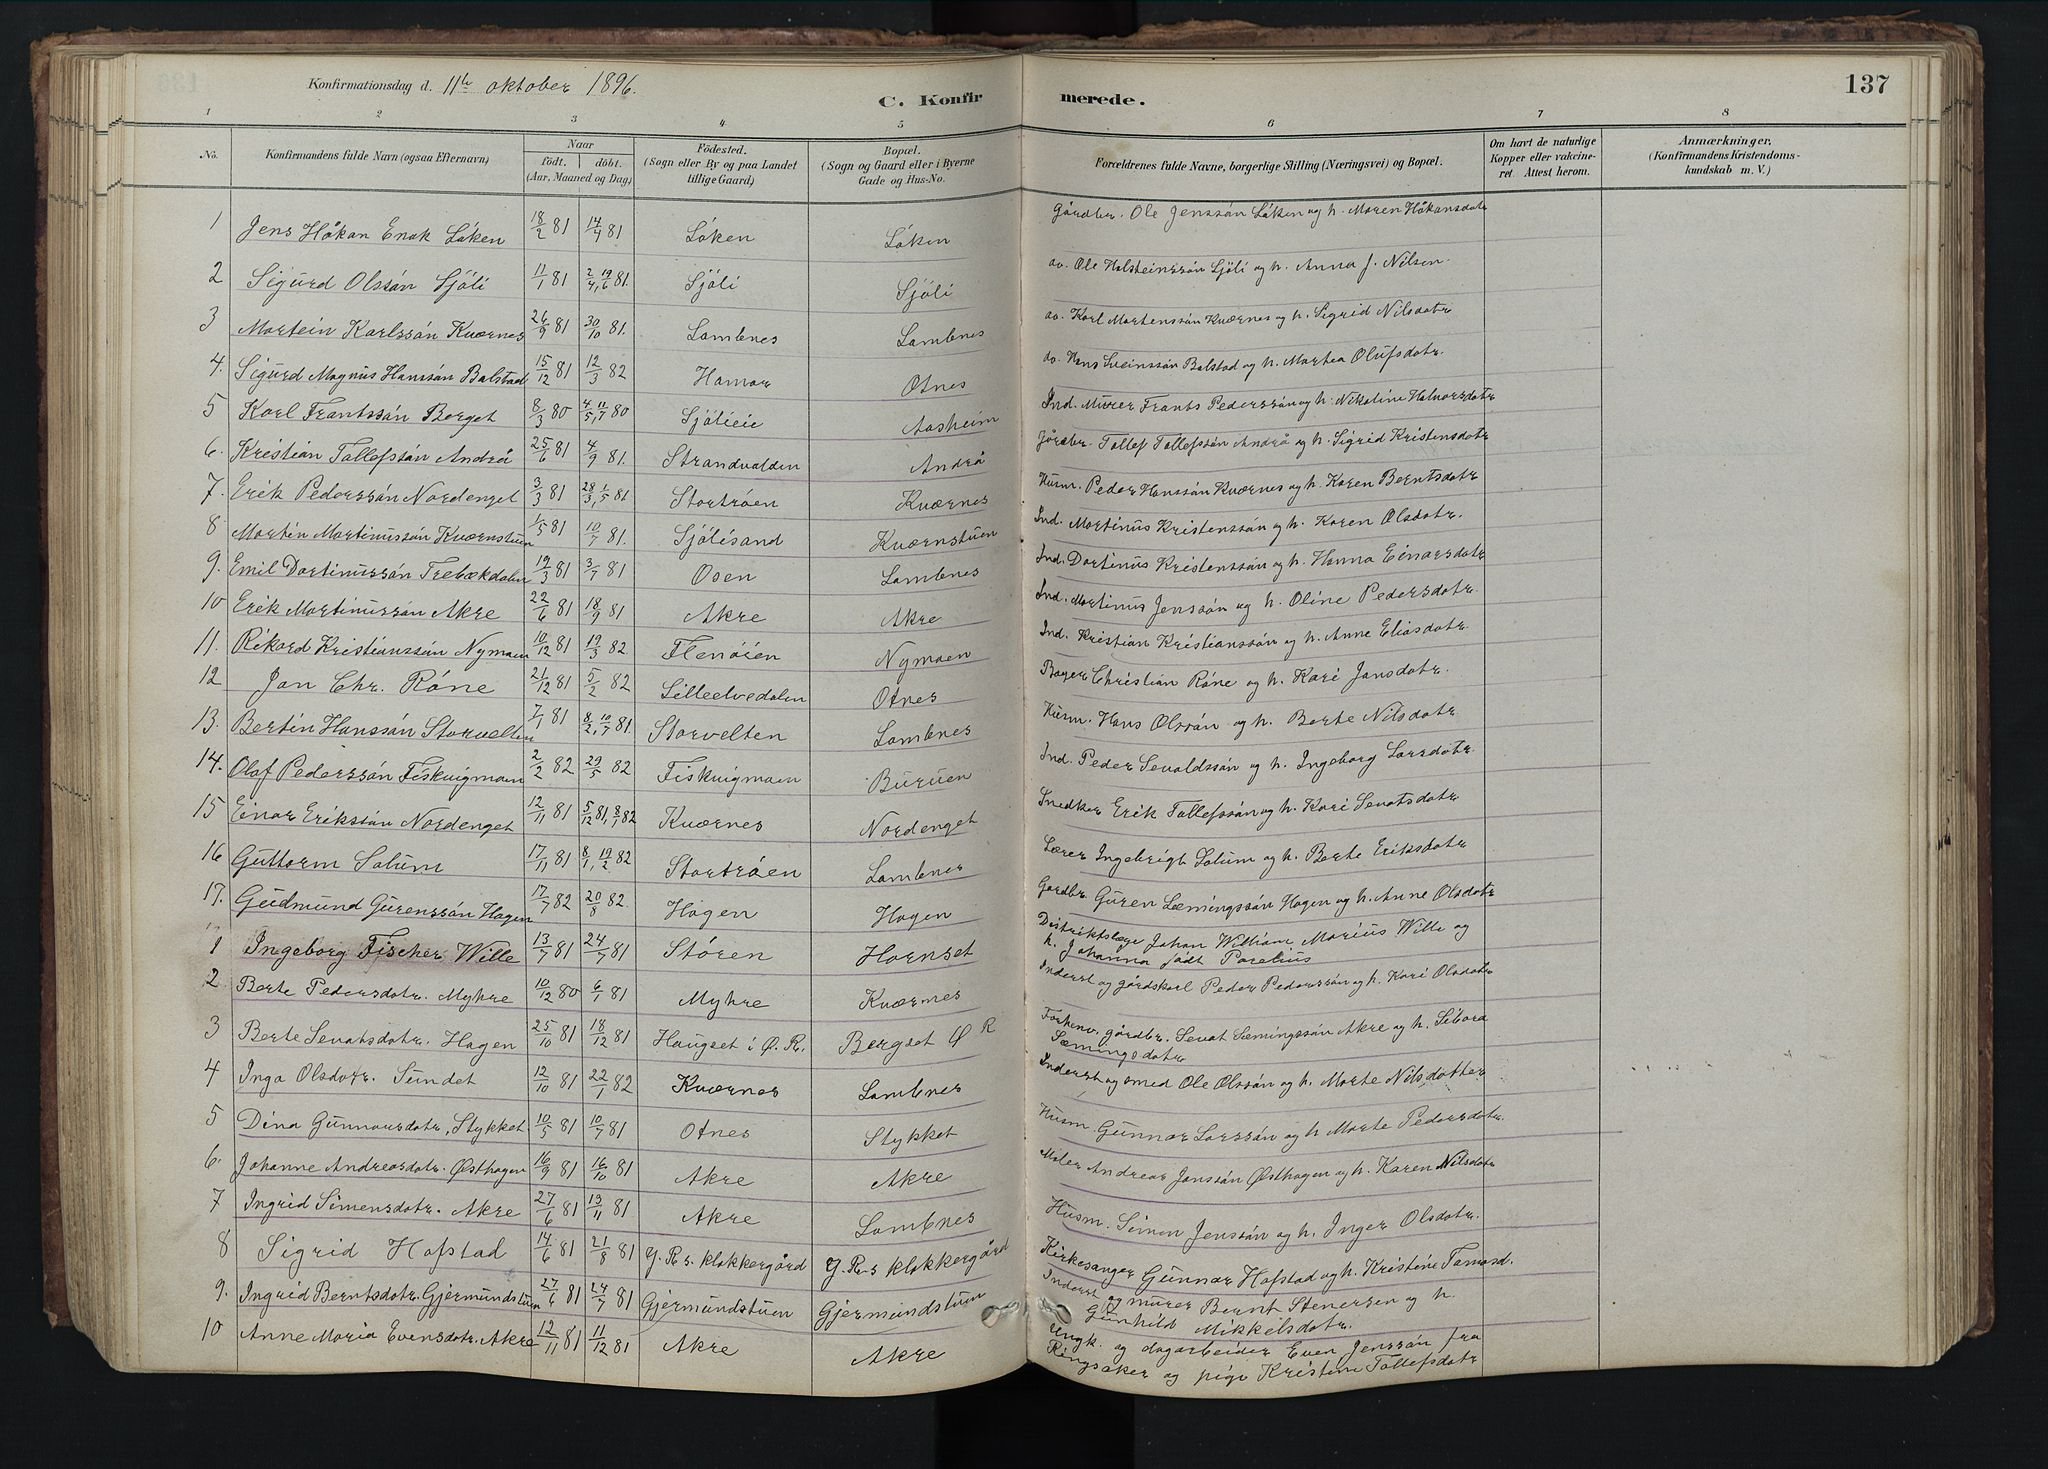 Konfirmationsdag d. 11te oktober 1896.
C. Konfirmerede.
137
1 2 3 4 5 6 7 8
No. Konfirmandens fulde Navn (ogsaa Efternavn) Naar født. døbt. (Aar, Maaned og Dag) Fødested. (Sogn eller By og paa Landet tillige Gaard) Bopæl. (Sogn og Gaard eller i Byerne Gade og Hus-No. Forældrenes fulde Navne, borgerlige Stilling (Næringsvei) og Bopæl. Om havt de naturlige Kopper eller vakcineret. Attest herom. Anmærkninger. (Konfirmandens Kristendomskundskab m. V.)
1 Jens Håkan Enok Løken 18/2 81 14/4 81 Løken Løken Gårdbr. Ole Jenssøn Løken og h. Maren Håkansdotr
2 Sigurd Olssøn Sjøli 11/1 81 2/4, 19/6 81. Sjøli Sjøli do. Ole Halsteinssøn Sjøli og h. Anna J. Nilsen
3 Martein Karlssøn Kværnes 26/9 81 30/10 81. Lambnes Lambnes do. Karl Martenssøn Kværnes og h. Sigrid Nilsdotr
4. Sigurd Magnus Hanssøn Balstad 15/12 81 12/3 82 Hamar Otnes do. Hans Sveinssøn Balstad og h. Martea Olufsdotr.
5 Karl Frantssøn Berget 8/3 80 4/5, 11/7 80 Sjølieie Aasheim Ind. Murer Frants Pederssøn og h. Nikoline Halvorsdotr
6. Kristian Tollefssøn Andrå 25/6 81 4/9 81. Strandvolden Andrå Gårdbr. Tollef Tollefssøn Andrå og h. Sigrid Kristensdotr
7. Erik Pederssøn Nordenget 3/3 81 28/3, 1/5 81 Stortrøen Kværnes Husm. Peder Hanssøn Kværnes og h. Karen Berntsdotr
8 Martin Martinussøn Kværnstuen 1/5 81 10/7 81. Sjølisand Kværnstuen Ind. Martinus Kristenssøn og h. Karen Olsdotr.
9. Emil Dortinussøn Trebækdalen 19/3 81 3/7 81 Osen Lambnes Ind. Dortinus Kristenssøn og h. Hanna Einarsdotr
10 Erik Martinussøn Akre 22/6 81 18/9 81 Akre Akre Ind. Martinus Jenssøn og h. Oline Pedersdotr.
11. Rikard Kristianssøn Nymoen 10/12 81 19/3 82 Flenøien Nymoen Ind. Kristian Kristianssøn og h. Anne Eliasdotr.
12 Jon Chr. Røne 21/12 81 5/2 82 Lilleelvedalen Otnes Bager Christian Røne og h. Kari Jonsdotr.
13. Bertin Hanssøn Storvelten 7/1 81 8/2, 10/7 81. Storvelten Lambnes Husm. Hans Olssøn og h. Berte Nilsdotr
14. Olaf Pederssøn Fiskvigmoen 2/2 82 29/5 82 Fiskvigmoen Buruen Ind. Peder Sevaldssøn og h. Ingeborg Larsdotr.
15 Einar Erikssøn Nordenget 12/11 81 5/12 81, 8/1 82 Kværnes Nordenget Snedker Erik Tollefssøn og h. Kari Sevatsdotr
16 Guttorm Solum 17/11 81 8/1, 19/2 82 Stortrøen Lambnes Lærer Ingebrigt Solum og h. Berte Eriksdotr
17. Gudmund Gurenssøn Hagen 17/7 82 20/8 82. Hagen Hagen Gårdbr. Guren Sæmingssøn Hagen og h. Anne Olsdotr
1 Ingeborg Fischer Wille 13/7 81 24/7 81 Støren Hornset Distriktslæge Johan William Marius Wille og
h. Johanna født Parelius
2. Berte Pedersdotr. Myhre 10/12 80 6/1 81 Myhre Kværnes Inderst og gårdskarl Peder Pederssøn og h. Kari Olsdotr
3 Berte Sevatsdotr. Hagen 25/10 81 18/12 81 Haugset i Ø. R. Bergset Ø R Forhenv. gårdbr. Sevat Sæmingssøn Akre og h. Sibora
Sæmingsdotr
4 Inga Olsdotr. Sundet 12/10 81 22/1 82 Kværnes Lambnes Inderst og smed Ole Olssøn og h. Marte Nilsdotter
5 Dina Gunnarsdotr. Stykket 10/5 81 10/7 81 Otnes Stykket Husm. Gunnar Larssøn og h Marte Pedersdotr.
6. Johanne Andreasdotr. Østhagen 16/9 81 16/10 81 Akre Akre Maler Andreas Janssøn Østhagen og h. Karen Nilsdotr
7 Ingrid Simensdotr. Akre 27/6 81 13/11 81 Akre Lambnes Husm. Simen Jenssøn og h. Inger Olsdotr.
8 Sigrid Hofstad 14/6 81 21/8 81 Y. R.s. klokkergård Y. R-s klokkergård Kirkesanger Gunnar Hofstad og h. Kristine Tomasd.
9. Ingrid Berntsdotr. Gjermundstuen 27/6 81 24/7 81 Gjermundstuen Gjermundstuen Inderst og murer Bernt Stenersen og h.
Gunhild Mikkelsdotr.
10 Anne Maria Evensdotr. Akre 12/11 81 11/12 81 Akre Akre Ungk. og dagarbeider Even Jenssøn fra
Ringsaker og pige Kristine Tollefsdotr